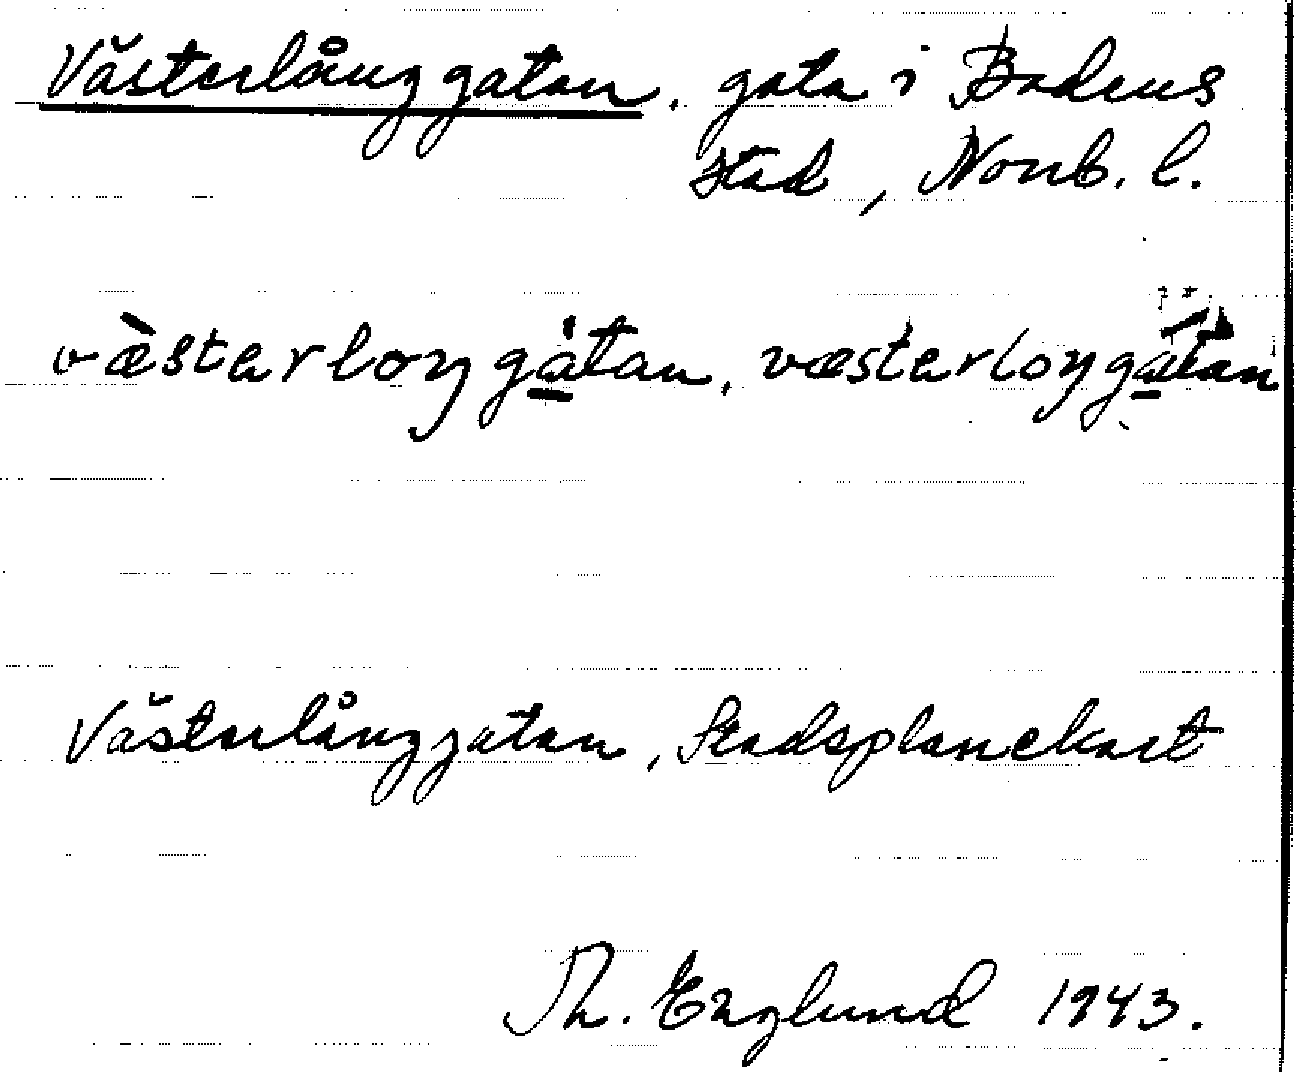 Västerlånggatan, gata i Bodens
stad, Norrb. l.
væ̀sterloŋgåtan, væsterloŋgatan
Västerlånggatan, Stadsplanekart
Th. Englund 1943.